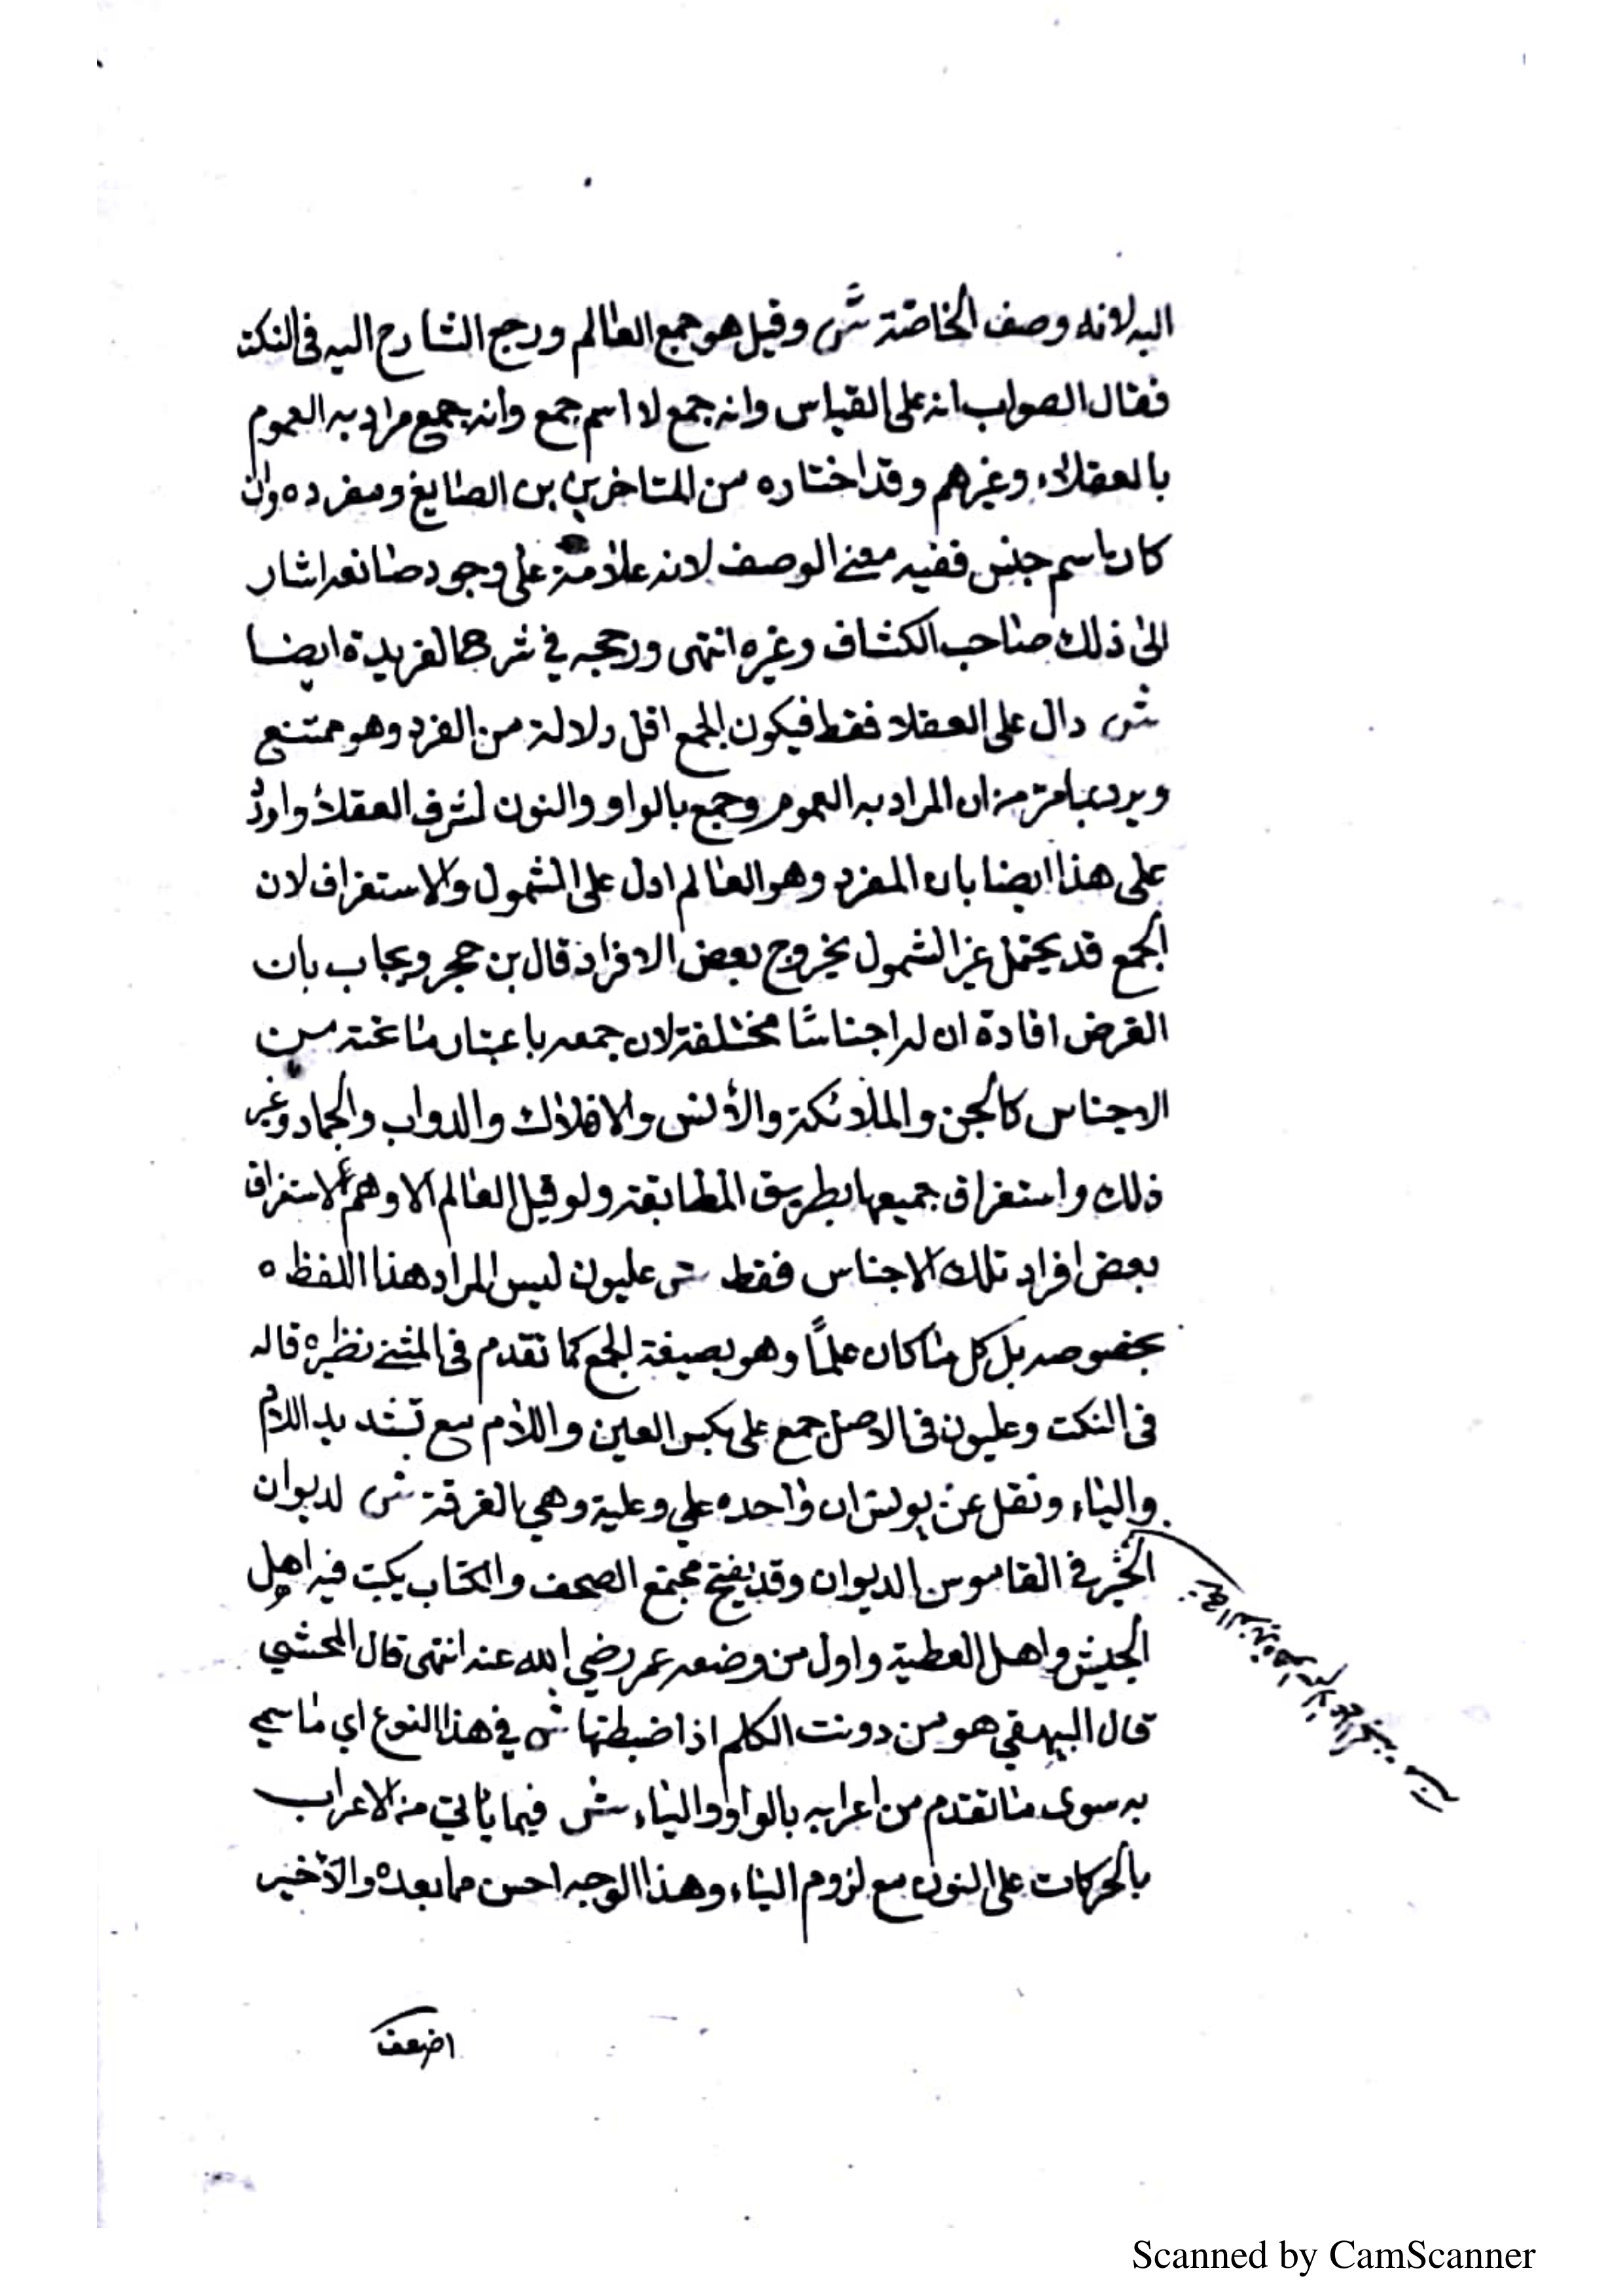 اليه لانه وصف الخاصة ش وقيل هو جمع العالم ورجح الشارح اليه في النكت
فقال الصواب انه على القياس وانه جمع لا اسم جمع وانه جمع مراد به العموم
بالعقلاء وغيرهم وقد اختاره من المتاخرين بن الصايغ ومفرده وان
كان اسم جنس ففيه معنى الوصف لانه علامة على وجود صانعه اشار
الى ذلك صاحب الكشاف وغيره انتهى ورجحه في شرح الفريدة ايضا
ش دال على العقلا فقط فيكون الجمع اقل دلالة من الفرد وهو ممتنع
ويرد بما مر من ان المراد به العموم وجمع بالواو والنون لشرف العقلا واورد
على هذا ايضا بان المفرد وهو العالم ادل على الشمول والاستغراق لان
الجمع قد يحتمل غير الشمول بخروج بعض الافراد قال بن حجر ويجاب بان
الغرض افادة ان له اجناسًا مختلفة لان جمعه باعتبار ما تحته من
الاجناس كالجن والملائكة والأنس والافلاك والدواب والجماد وغير
ذلك واستغراق جميعها بطريق المطابقة ولو قيل العالم لاوهم الاستغراق
بعض افراد تلك الاجناس فقط ش عليون ليس المراد هذا اللفظ ه
بخصوصه بل كل ما كان علمًا وهو بصيغة الجمع كما تقدم في المثنى نظيره قاله
في النكت وعليون في الاصل جمع على بكسر العين واللام مع تشديد اللام
والياء ونقل عن يونس ان واحده علي وعلية وهي الغرفة ش لديوان
الخير في القاموس الديوان وقد يفتح مجتمع الصحف والكتاب يكتب فيه اهل
الجيش واهل العطية واول من وضعه عمر رضي الله عنه انتهى قال المحشي
قال البيهقي هو من دونت الكلم اذا ضبطتها ش في هذا النوع اي ما سمي
به سوى ما تقدم من اعرابه بالواو والياء ش فيما ياتي من الاعراب
بالحركات على النون مع لزوم الياء وهذا الوجه احسن مما بعده والأخير
اضعف
Scanned by CamScanner